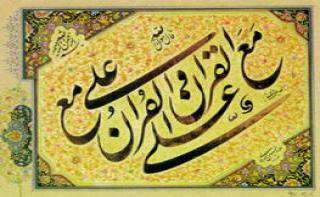 علی مع القرآن و القرآن مع علی